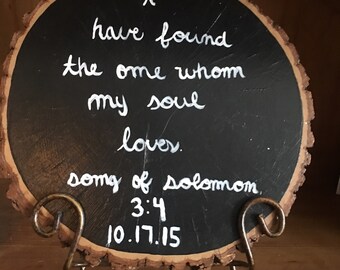 have found
the one whom
my soul
loves.
song of solomon
3:4
10.17.15